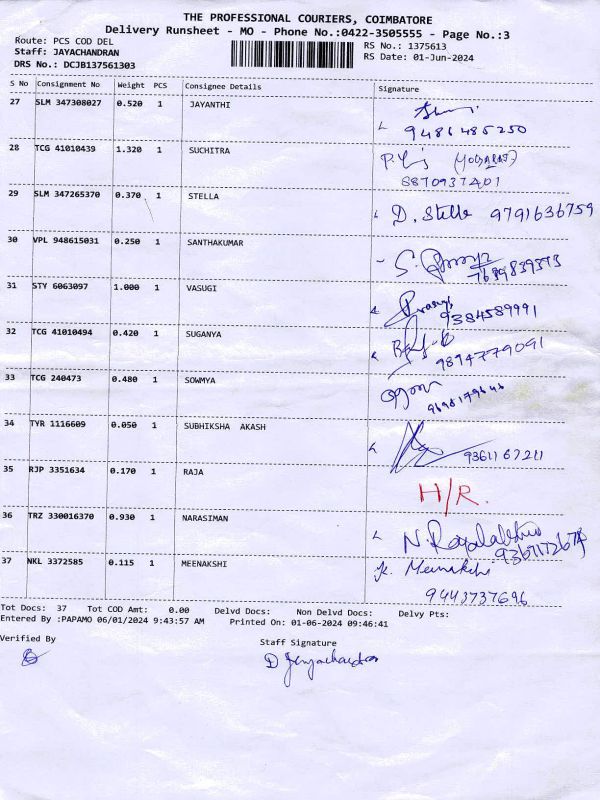 THE PROFESSIONAL COURIERS, COIMBATORE
Delivery Runsheet - MO - Phone No.:0422-3505555 - Page No.:3
Route: PCS COD DEL
RS No.: 1375613
Staff: JAYACHANDRAN
RS Date: 01-Jun-2024
DRS No.: DCJB137561303
S No Consignment No Weight PCS Consignee Details Signature
27 SLM 347308027 0.520 1 JAYANTHI
9486485250
28 TCG 41010439 1.320 1 SUCHITRA
8870937401
29 SLM 347265370 0.370 1 STELLA D. Stella 9791636759
30 VPL 948615031 0.250 1 SANTHAKUMAR
7639839373
31 STY 6063097 1.000 1 VASUGI
9384589991
32 TCG 41010494 0.420 1 SUGANYA
9894779091
33 TCG 240473 0.480 1 SOWMYA
9698179646
34 TYR 1116609 0.050 1 SUBHIKSHA AKASH
9361167211
35 RJP 3351634 0.170 1 RAJA H/R.
36 TRZ 330016370 0.930 1 NARASIMAN
37 NKL 3372585 0.115 1 MEENAKSHI Meenakshi
9443737696
Tot Docs: 37 Tot COD Amt: 0.00 Delvd Docs: Non Delvd Docs: Delvy Pts:
Entered By :PAPAMO 06/01/2024 9:43:57 AM Printed On: 01-06-2024 09:46:41
Verified By Staff Signature
D Jeyachandran